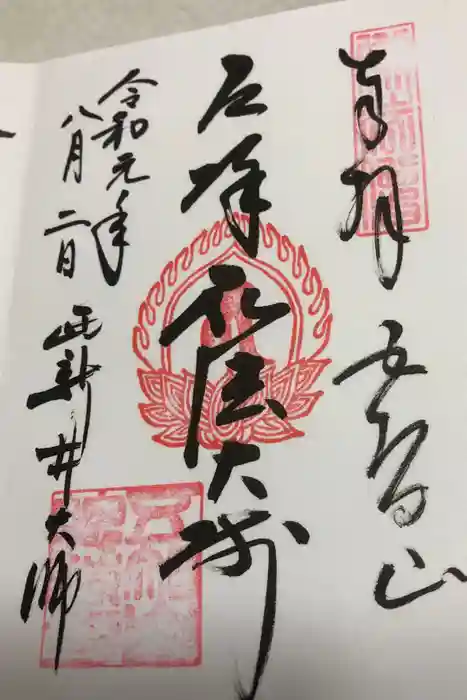 奉拝 五智山
厄除弘法大師
令和元年
八月二日
西新井大師